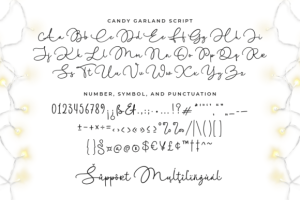 CANDY GARLAND SCRIPT
Aa Bb Cc Dd Ee Ff Gg Hh Ii
Jj Kk Ll Mm Nn Oo Pp Qq Rr
Ss Tt Uu Vv Ww Xx Yy Zz
NUMBER, SYMBOL, AND PUNCTUATION
0123456789
{}§¤@©®$€¥£¢™†‡^
Support Multilingual